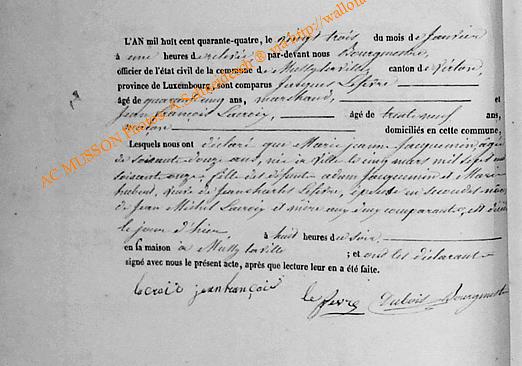 L'AN mil huit cent quarante-quatre, le vingt trois du mois de Janvier
à une heures de relevée par-devant nous Bourgmestre,
officier de l'état civil de la commune de Mussy la ville, canton de Virton,
province de Luxembourg, sont comparus Jacques Lefevre
âgé de quarante cinq ans, marchand, et
Jean François Lacroix, âgé de trente neuf ans,
domiciliés en cette commune,
Lesquels nous ont déclaré que Marie Jeanne Jacquemin, agée
de soixante douze ans, née à Ville le cinq mars mil sept cent
soixante onze, fille des défunts adam Jacquemin et Marie
veuve de Jean Charles Lefèvre, épouse en secondes noces
de Jean Michel Lacroix et mère aux comparants, est décédée
le jour d'hier, à huit heures du soir
en sa maison à Mussy la ville ; et ont les déclarants
signé avec nous le présent acte, après que lecture leur en a été faite.
lacroix jean françois le fevre Dubois Bourgmestre
AC MUSSON Photos A.Schleidesch ® via http://wallon